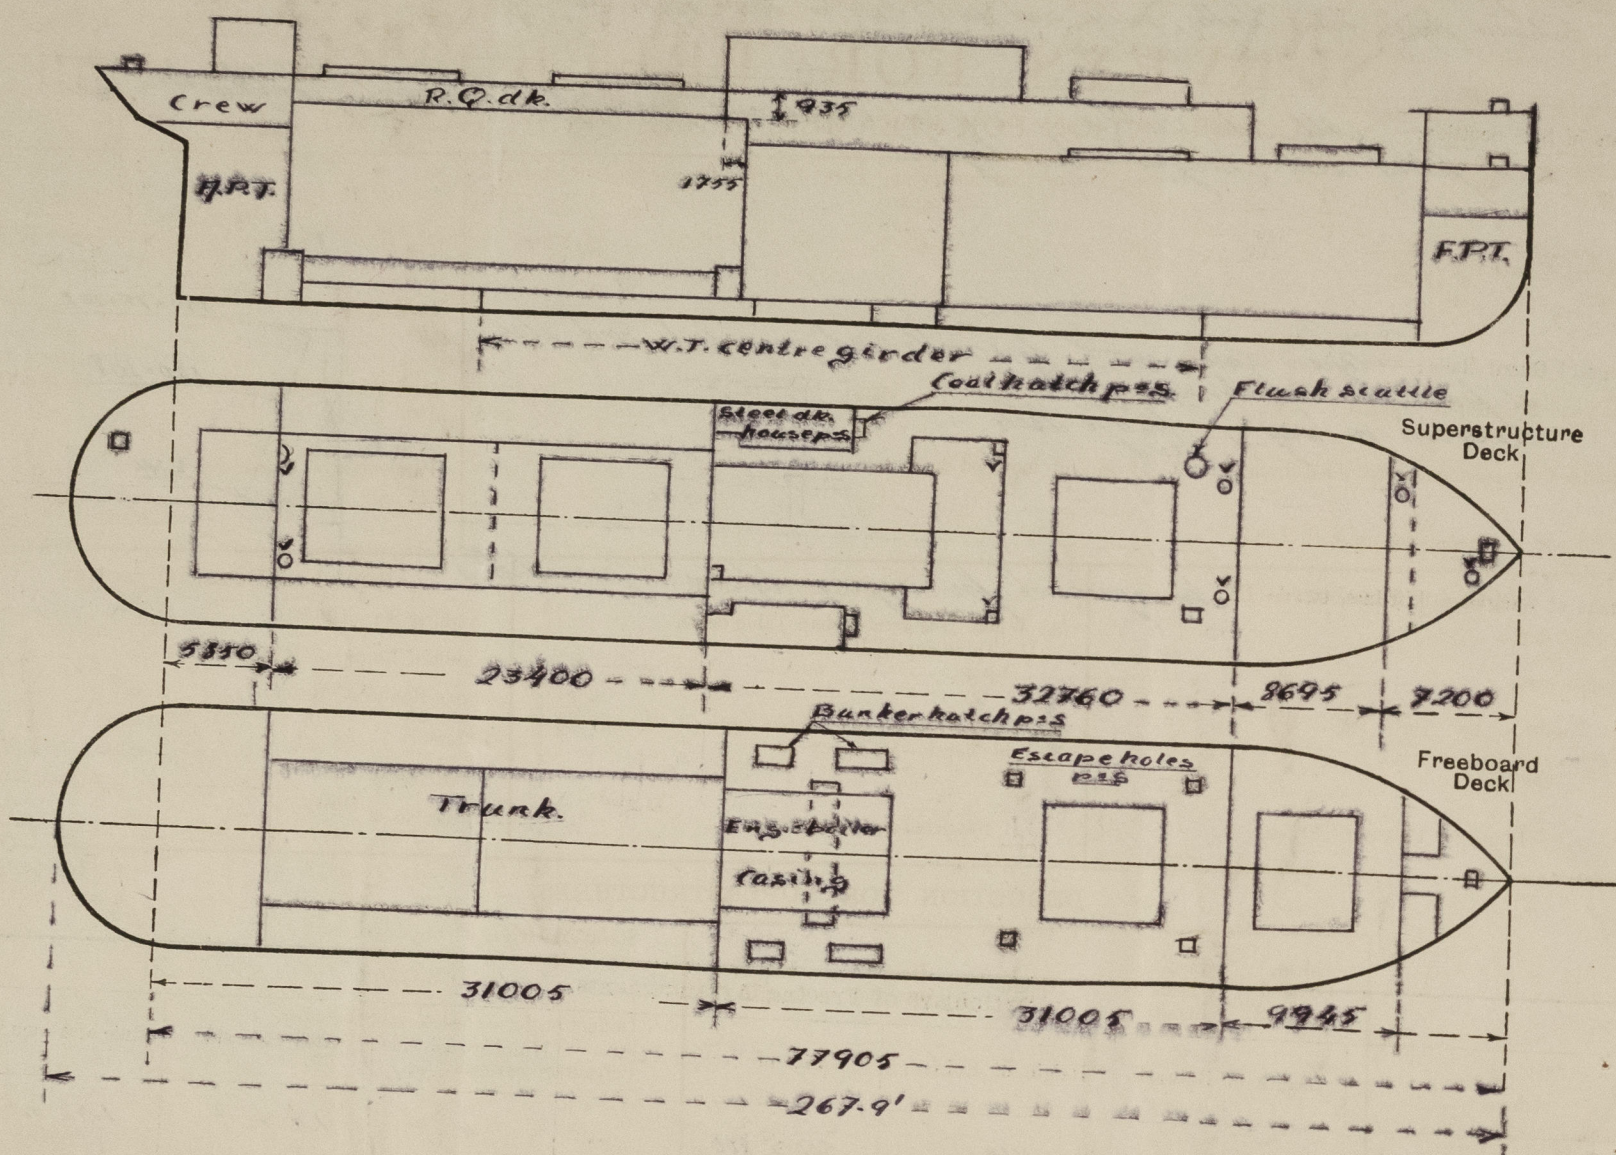 Crew
R.Q.dk.
935
1755
A.P.T.
F.P.T.
W.T. centre girder
Coal hatch p=s.
Flush scuttle
Steel dk.
house p=s
Superstructure
Deck
5350
23400
32760
8695
7200
Bunker hatch p=s
Escape holes
p=s
Freeboard
Deck
Trunk.
Eng. & boiler
Casing
31005
31005
9945
77905
267.9'